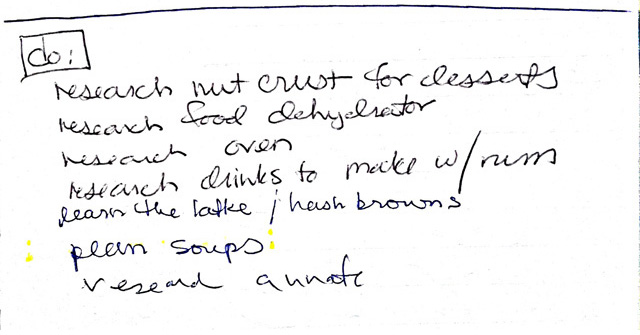 do:
research nut crust for desserts
research food dehydrator
research oven
research drinks to make w/rum
learn the latke / hash browns
plan soups